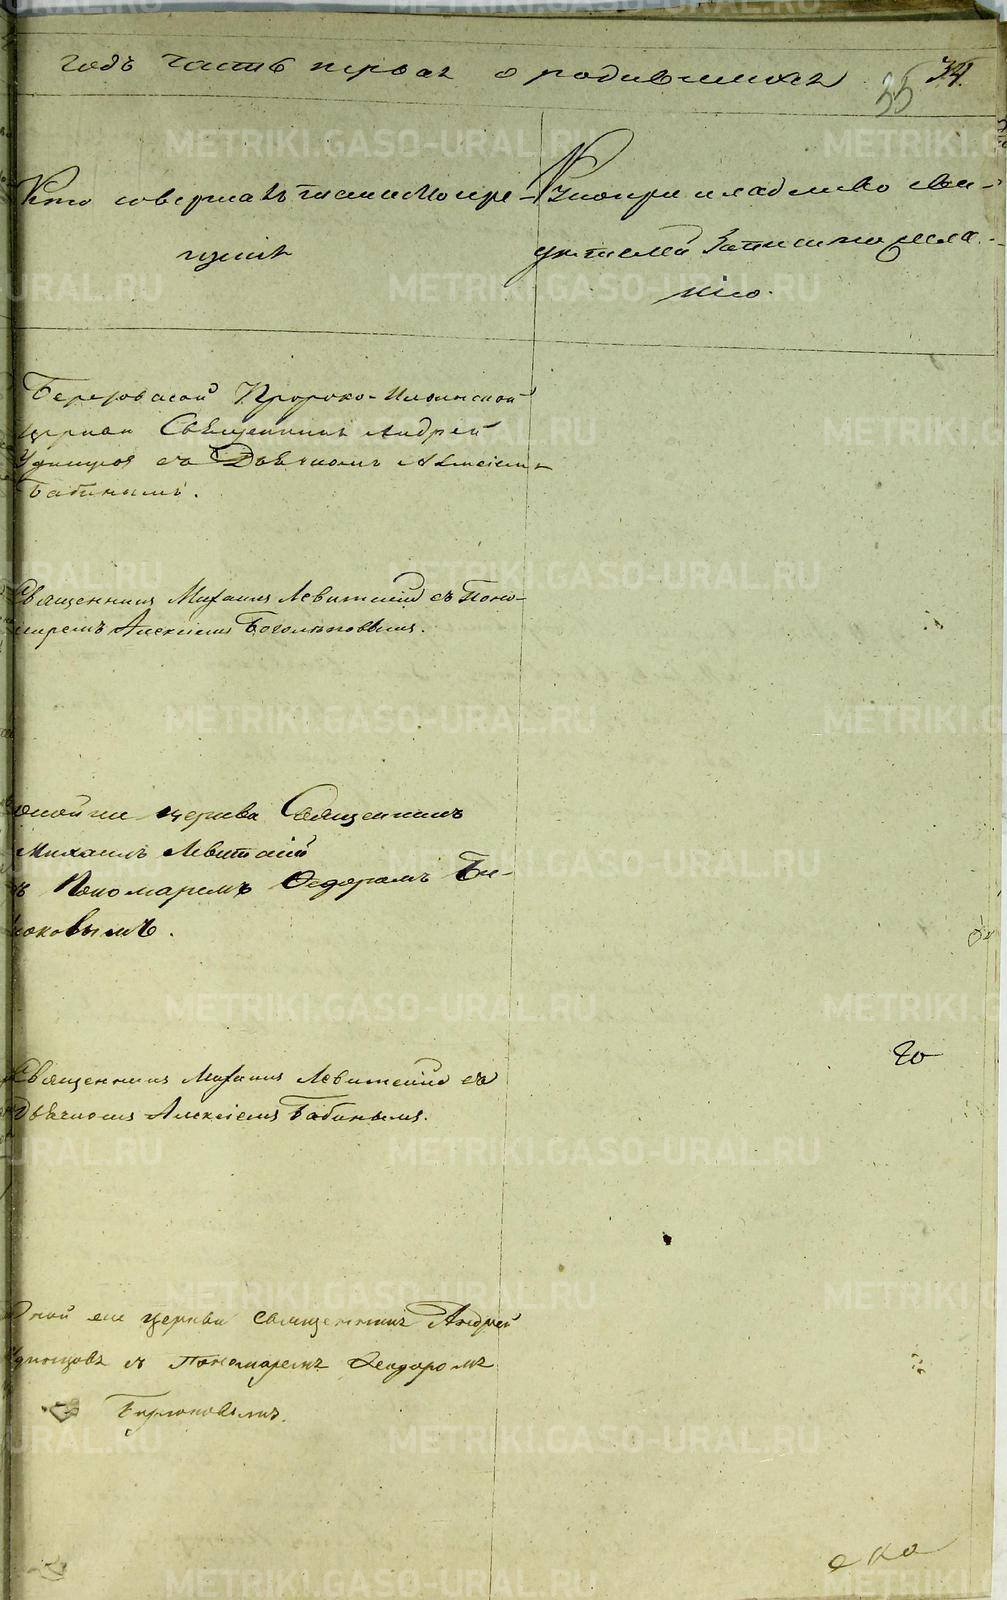 годъ часть первая о родившихся 35 34.
Кто совершалъ таинство кре-
щенія
Рукоприкладство сви-
дѣтелей записи по жела-
нію.
Березовской Пророко-Ильинской
церкви Священникъ Андрей
Удинцов съ Дьячкомъ Алексіемъ
Бабинымъ.
Священникъ Михаилъ Левитскій съ Поно-
маремъ Алексіемъ Боголѣповымъ.
оной же церкви Священникъ
Михаилъ Левитскій
съ Пономаремъ Ѳедоромъ Би-
рюковымъ.
Священникъ Михаилъ Левитскій съ
Дьячкомъ Алексіемъ Бабинымъ.
Оной же церкви священникъ Андрей
Удинцовъ съ Пономаремъ Ѳеодоромъ
Бирюковымъ.
METRIKI.GASO-URAL.RU